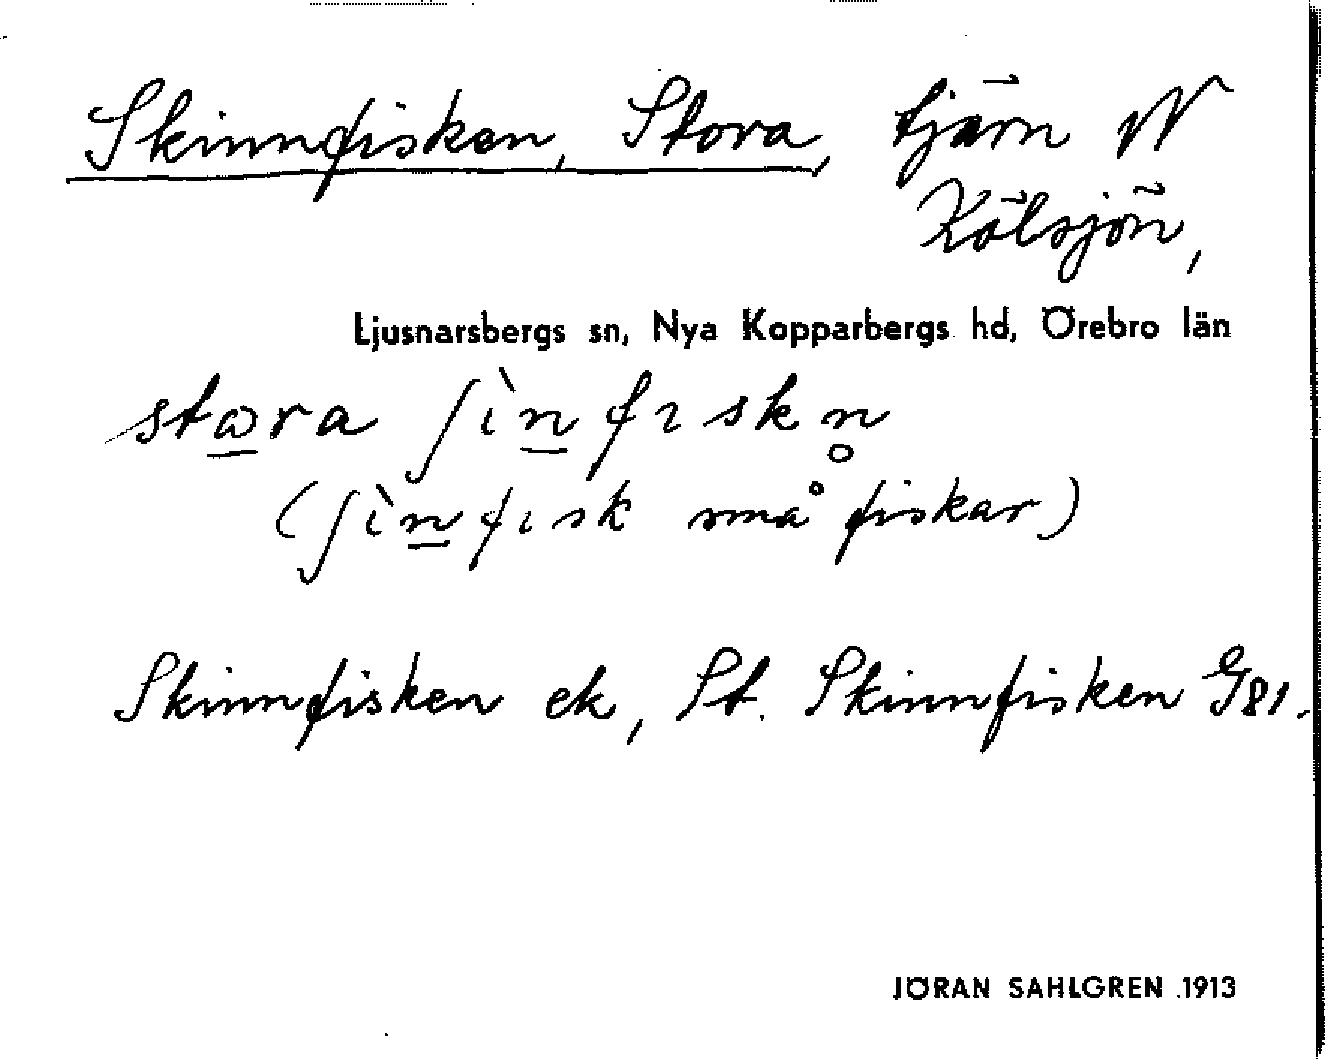 Skinnfisken, Stora, tjärn N
Kölsjön,
Ljusnarsbergs sn, Nya Kopparbergs hd, Örebro län
stωra ʃìn̠fɪskn̥
(ʃìn̠fɪsk små fiskar)
Skinnfisken ek, St. Skinnfisken G81.
JÖRAN SAHLGREN 1913